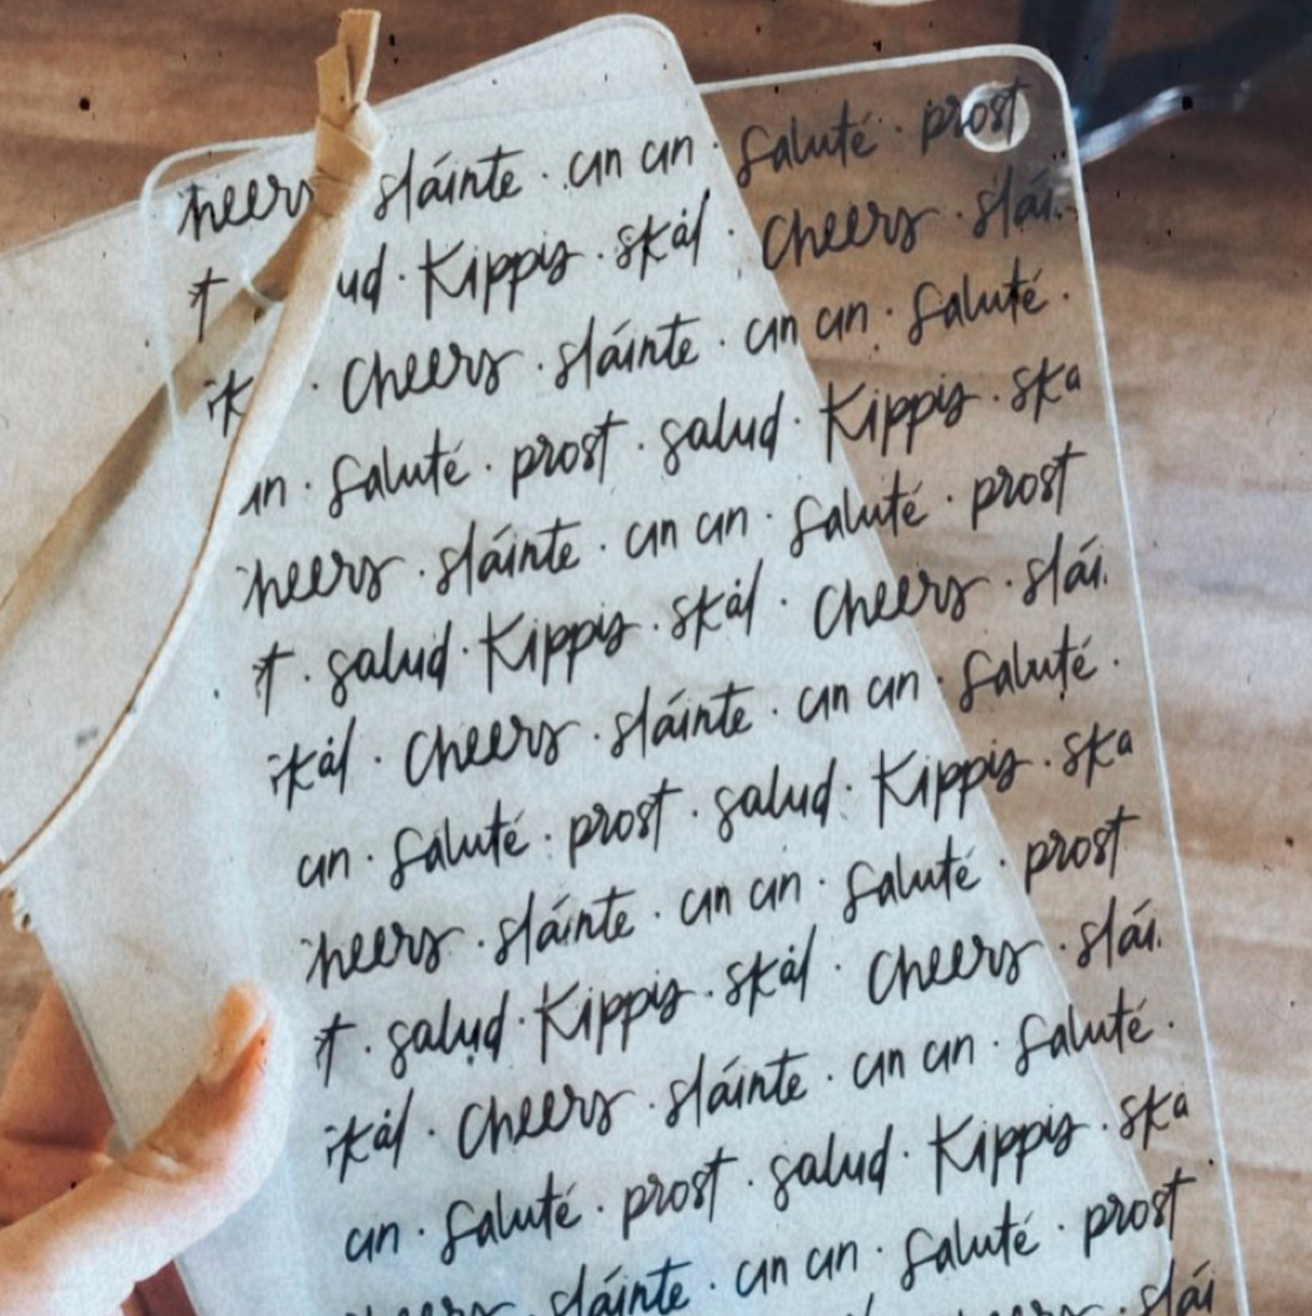 heers sláinte · cin cin · saluté · prost
t ud · Kippis · skål · Cheers · slái
k · Cheers · sláinte · cin cin · saluté ·
in · saluté · prost · salud · Kippis · ska
heers · sláinte · cin cin · saluté · prost
t · salud · Kippis · skål · Cheers · slái
skål · Cheers · sláinte · cin cin · saluté ·
cin · saluté · prost · salud · Kippis · ska
heers · sláinte · cin cin · saluté · prost
t · salud · Kippis · skål · Cheers · slái
skål · Cheers · sláinte · cin cin · saluté ·
cin · saluté · prost · salud · Kippis · ska
heers · sláinte · cin cin · saluté · prost
Cheers slái